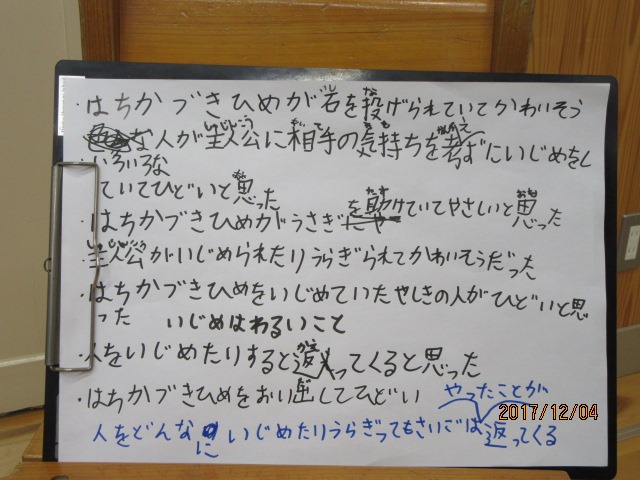 ・はちかづきひめが石を投げられていてかわいそう
・いろいろな人が主人公に相手の気持ちを考えずにいじめをし
ていてひどいと思った
・はちかづきひめがうさぎを助けていてやさしいと思った
・主人公がいじめられたりうらぎられてかわいそうだった
・はちかづきひめをいじめていたやしきの人がひどいと思
った いじめはわるいこと
・人をいじめたりすると返ってくると思った
・はちかづきひめをおい出してひどい
やったことが
人をどんなにいじめたりうらぎってもさいごは返ってくる
2017/12/04